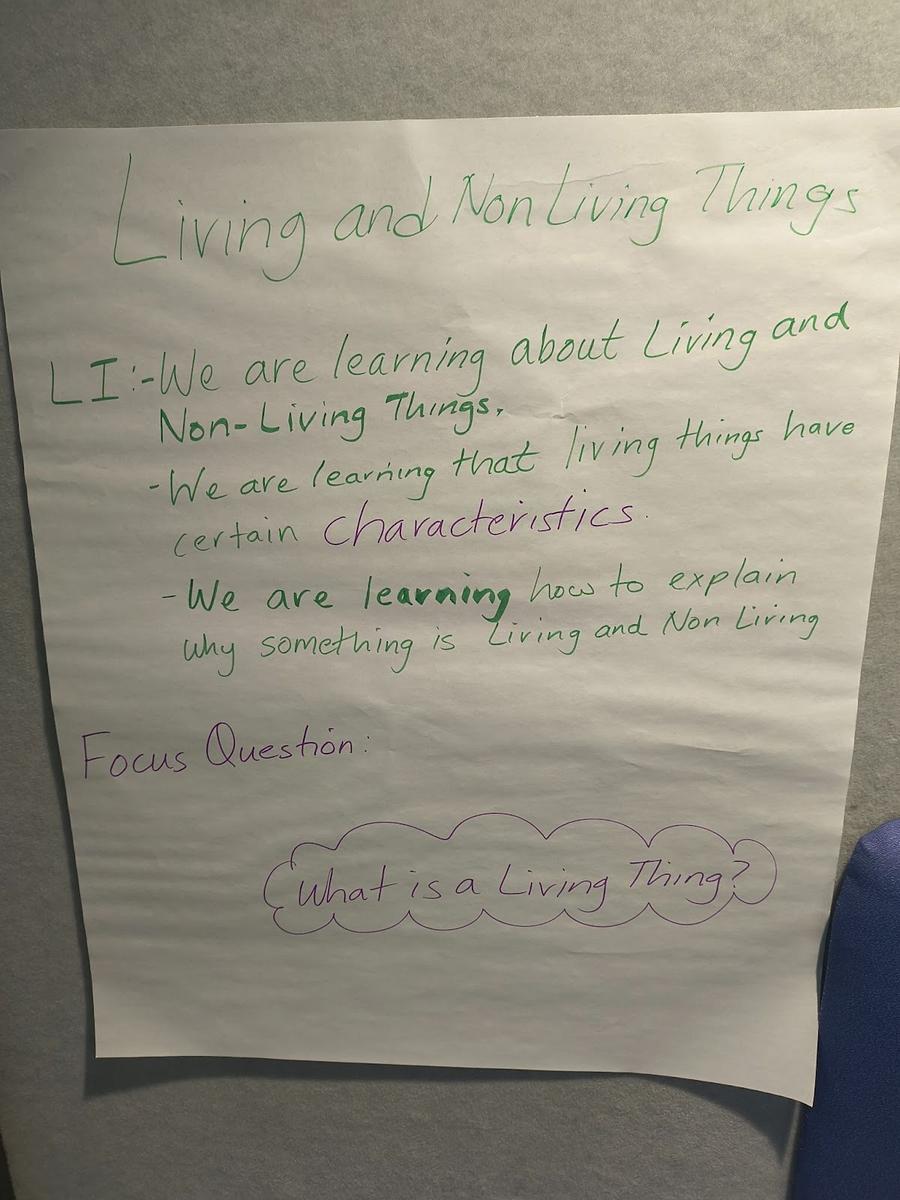 Living and Non Living Things
LI:-We are learning about Living and
Non-Living Things.
-We are learning that living things have
certain characteristics.
-We are learning how to explain
why something is Living and Non Living
Focus Question:
What is a Living Thing?